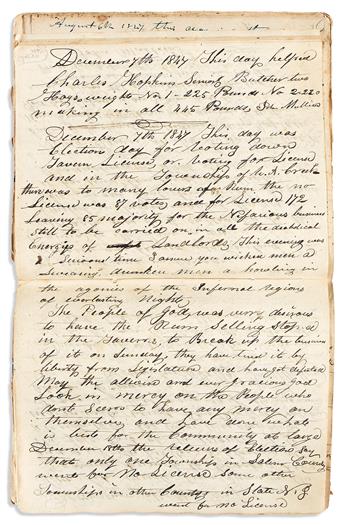 August 6th 1847 this
December 7th 1847 This day helped
Charles Hopkins Senior Butcher two
Hogs weights No. 1 - 225 Pounds No 2 - 220
making in all 445 Pounds
December 7th 1847 This day was
Election day for Voting down
Tavern License or Voting for License
and in the Township of
there was to many lovers of Rum the no
License was 87 votes and for License 172
Leaving 85 majority for the Nefarious business
still to be carried on in all the diabolical
Energies of Landlords, This evening was
a serious time I assure you wicked men a
swearing, drunken men a howling in
the agonies of the Infernal regions
of everlasting Night
The People of God was very disirous
to have the Rum Selling Stop.d
in the Taverns, to Break up the business
of it on Sunday, they have tried it by
liberty from Legislature and have got defeated
May the allwise and ever gracious God
Look in mercy on the People who
dont Seem to have any mercy on
themselves, and have done what
is best for the Community at large
December 18th the returns of Election Say
that only one Township in Salem County
went for No License some other
Townships in other Countys in State N. J
went for No License